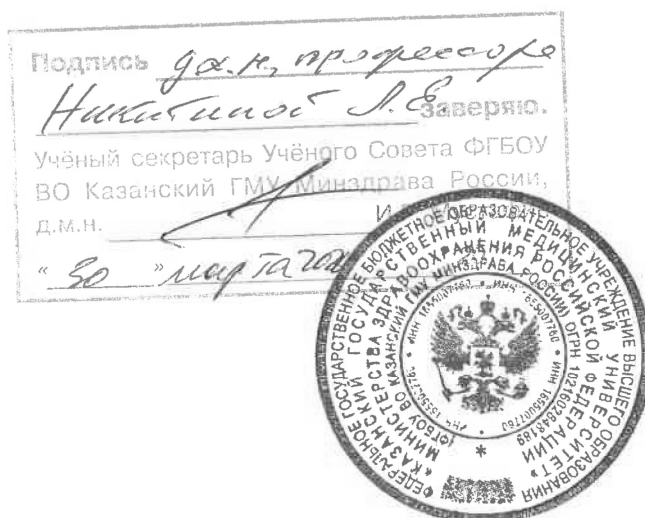 Подпись д.х.н, профессора
Никитиной Л.Е. заверяю.
Учёный секретарь Учёного Совета ФГБОУ
ВО Казанский ГМУ Минздрава России,
д.м.н.
"30" марта 20
ФЕДЕРАЛЬНОЕ ГОСУДАРСТВЕННОЕ БЮДЖЕТНОЕ ОБРАЗОВАТЕЛЬНОЕ УЧРЕЖДЕНИЕ ВЫСШЕГО ОБРАЗОВАНИЯ
«КАЗАНСКИЙ ГОСУДАРСТВЕННЫЙ МЕДИЦИНСКИЙ УНИВЕРСИТЕТ»
МИНИСТЕРСТВА ЗДРАВООХРАНЕНИЯ РОССИЙСКОЙ ФЕДЕРАЦИИ
(ФГБОУ ВО КАЗАНСКИЙ ГМУ МИНЗДРАВА РОССИИ) ОГРН 1021602848189
* ИНН 1655007760 * ИНН 1655007760 * ИНН 1655007760